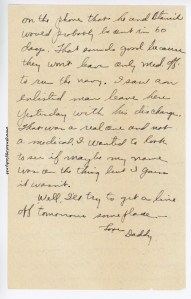 on the phone that he and David
would probably be out in 60
days. That sounds good because
they won't leave only med off
to run the navy. I saw an
enlisted man leave here
yesterday with his discharge.
That was a real one and not
a medical. I wanted to look
to see if maybe my name
was on the thing but I guess
it wasn't.
Well, I'll try to get a line
off tomorrow someplace.
Love
Daddy